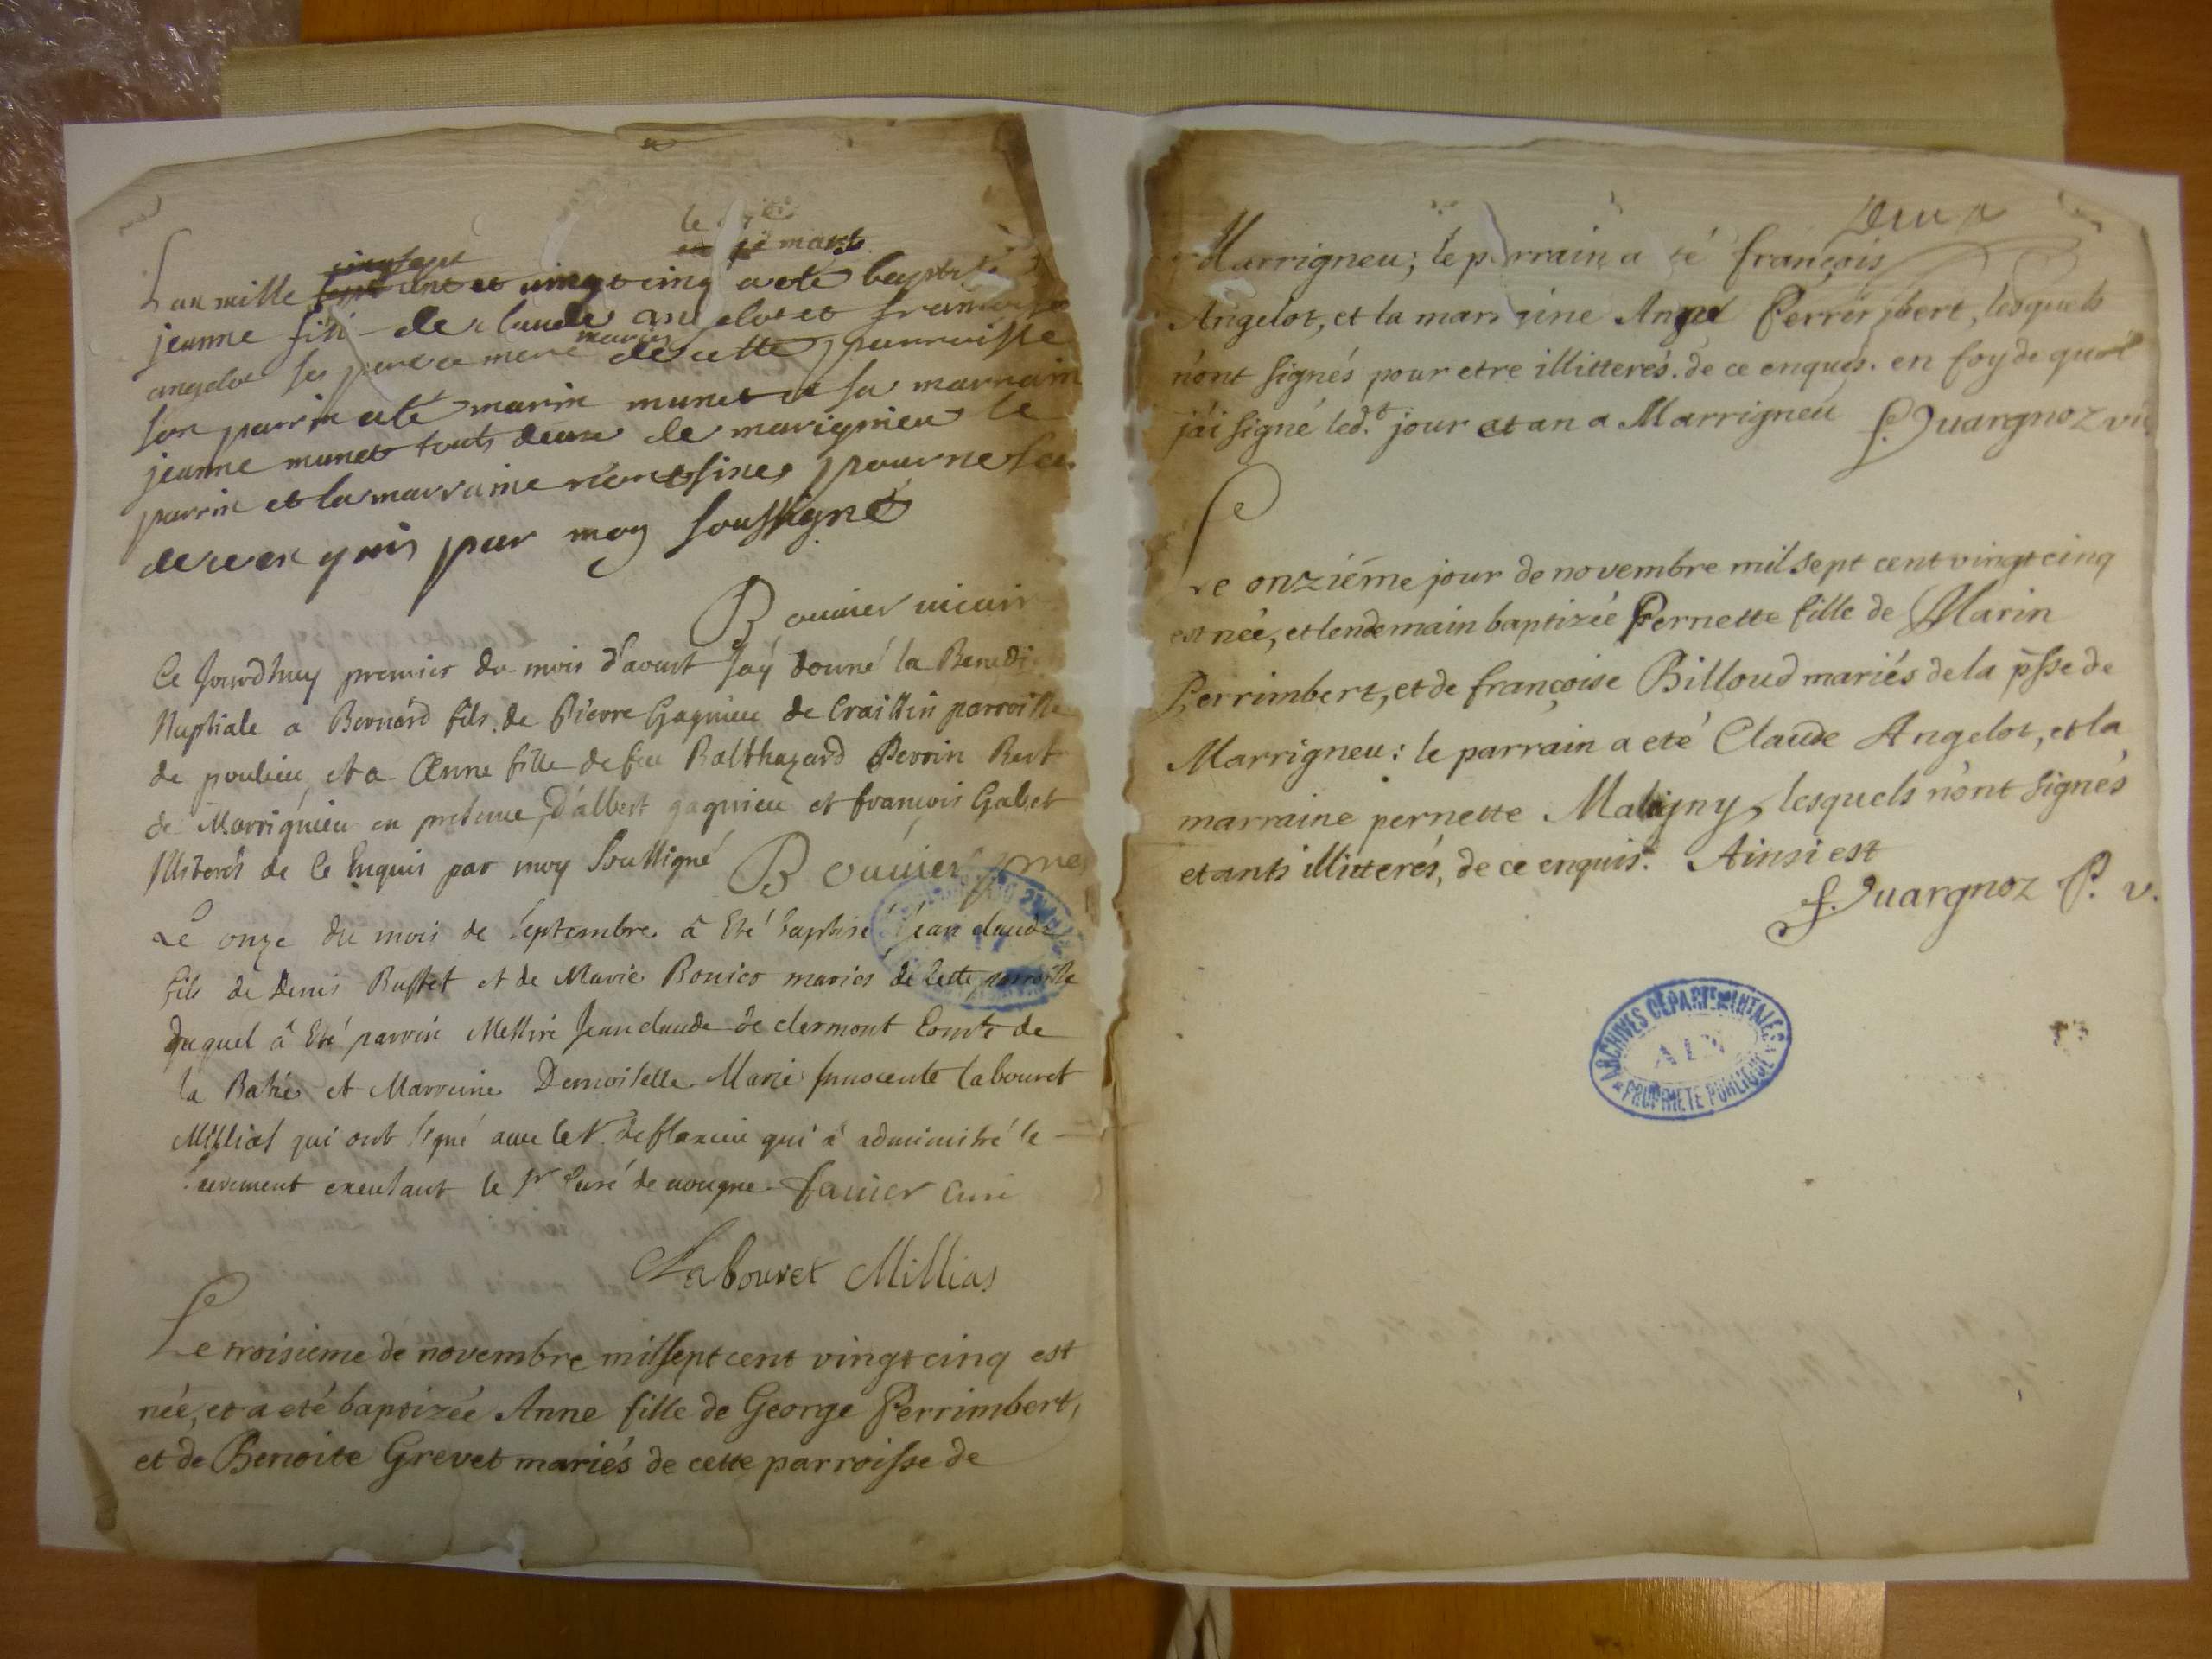 le
je mars
L'an mille sept cent et vingt cinq a eté baptisé
jeanne fili de claude angelot et francoise
angelot ses pere et mere mariés de cette parroisse
son parrin a eté marin munet et sa marrain
jeanne munet touts deux de marignieu le
parrin et la marraine n'ont sines pour ne sca
de ce enquis par moy soussigné
Bouvier vicair
Ce jourdhuy premier du mois d'aoust jaÿ donné la Benedi
Nuptiale a Bernard fils de Pierre Gagnieu de Craittin parroisse
de poulieu et a Anne fille de feu Balthazard Perrin Bert
de Marrignieu en presence d'albert gagnieu et francois Gabet
Illiterés de Ce Enquis par moy Soussigné Bouvier
Le onze du mois de Septembre à Eté baptisé Jean claude
fils de Denis Buffet et de Marie Bonier mariés de cette parroisse
duquel à Eté parrin Messire Jean claude de clermont Comte de
la Batie et Marreine Demoiselle Marie Innocente labouret
Millias qui ont signé avec le de flaxieu qui à administré le
Sacrement le Sr Curé de vougne favier curé
Labouret Millias
Le troisieme de novembre mil sept cent vingt cinq est
née, et a eté baptizée Anne fille de George Perrimbert,
et de Benoite Grevet mariés de cette parroisse de
Marrigneu; le parrain a eté françois
Angelot, et la marraine Anne Perrimbert, lesquels
n'ont signés pour etre illitterés. de ce enquis. en foy de quoi
j'ai signé led.t jour et an a Marrigneu F. Juargnoz vic
Le onziéme jour de novembre mil sept cent vingt cinq
est née, et lendemain baptizée Pernette fille de Marin
Perrimbert, et de françoise Billoud mariés de la psse de
Marrigneu: le parrain a eté Claude Angelot, et la
marraine pernette Maligny, lesquels n'ont signés
etants illitterés, de ce enquis. Ainsi est
F. Juargnoz P. v.
ARCHIVES DÉPARTEMENTALES
AIN
PROPRIETE PUBLIQUE